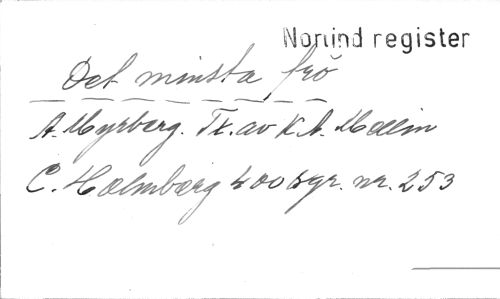 Norlind register
Det minsta frö
A. Myrberg. Tx. av K. A. Mellin
C. Holmberg 400 sgr. nr. 253